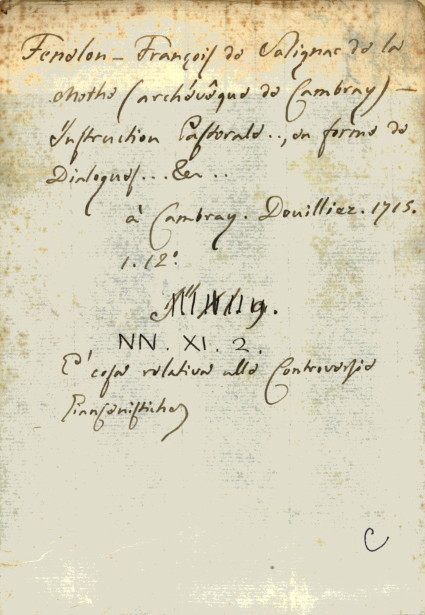 Fenelon - François de Salignac de la
Mothe (archévêque de Cambray) -
Instruction Pastorale..., en forme de
Dialogues... &a..
à Cambray. Douilliez. 1715.
1. 12°.
NN. XI. 2.
E' cosa relativa alle Controversie
Giansenistiche
C